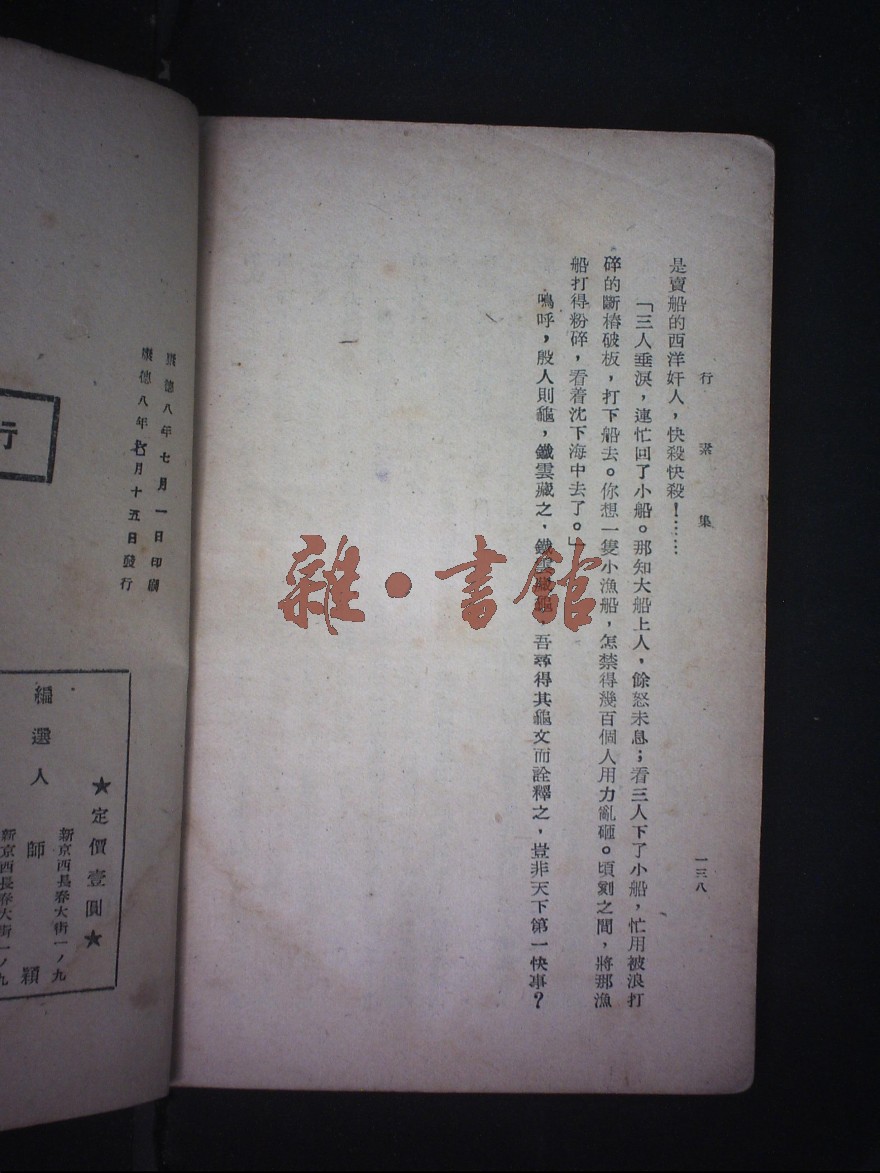 行素集
一三八
是賣船的西洋奸人，快殺快殺！……
「三人垂淚，連忙回了小船。那知大船上人，餘怒未息；看三人下了小船，忙用被浪打
碎的斷樁破板，打下船去。你想一隻小漁船，怎禁得幾百個人用力亂砸。頃刻之間，將那漁
船打得粉碎，看着沈下海中去了。」
嗚呼，殷人則龜，鐵雲藏之，鐵雲藏龜，吾尋得其龜文而詮釋之，豈非天下第一快事？
雜·書館
康德八年七月一日印刷
康德八年七月十五日發行
行
★定價壹圓★
新京西長春大街一ノ九
編選人 師 穎
新京西長春大街一ノ九